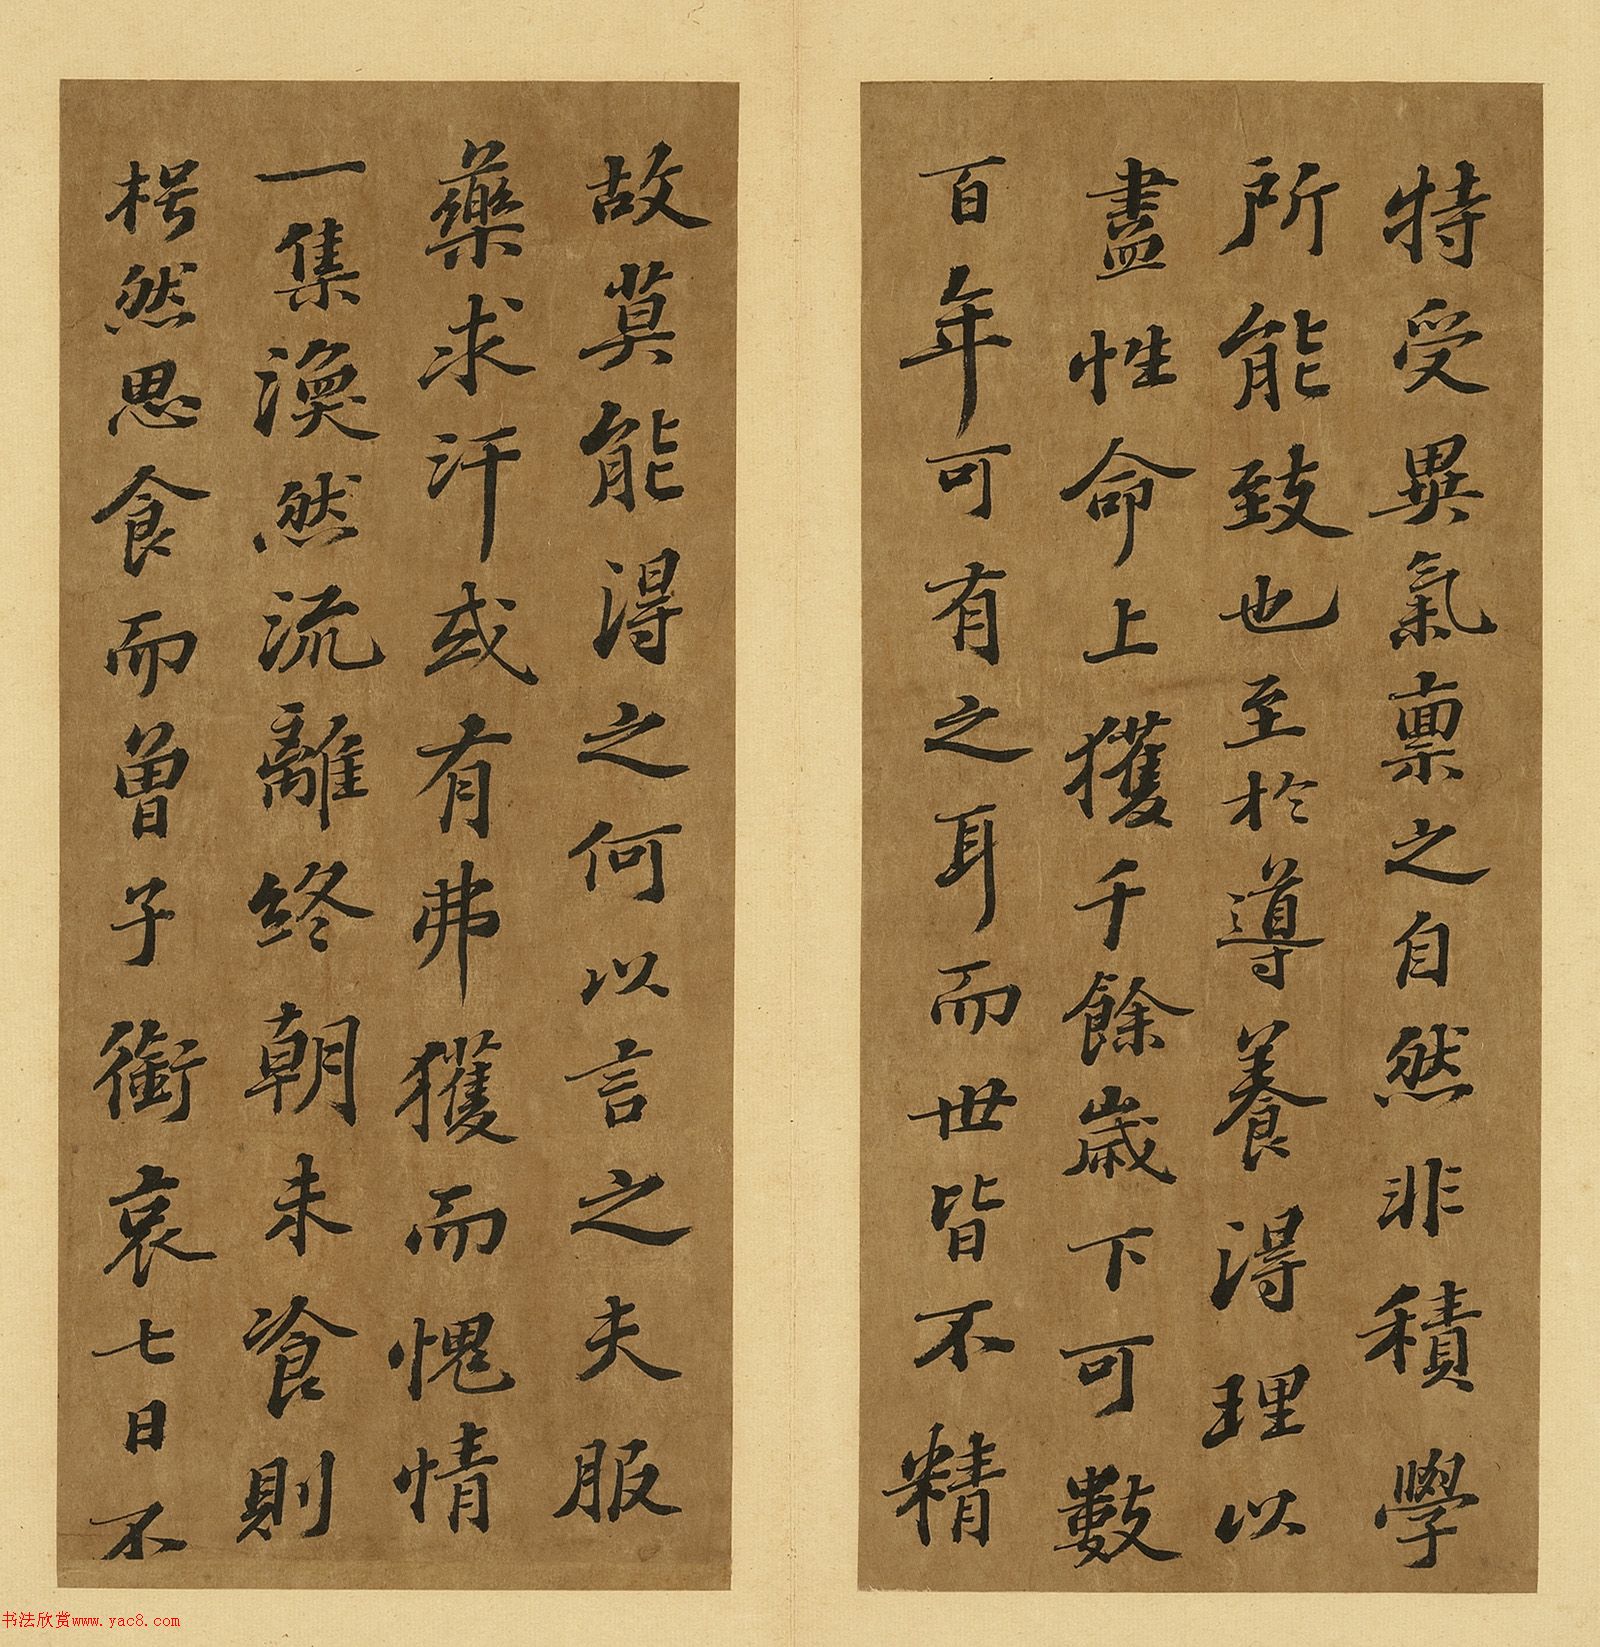 特受異氣稟之自然非積學
所能致也至於導養得理以
盡性命上獲千餘歲下可數
百年可有之耳而世皆不精
故莫能得之何以言之夫服
藥求汗或有弗獲而愧情
一集渙然流離終朝未飡則
枵然思食而曾子銜哀七日不
书法欣赏www.yac8.com